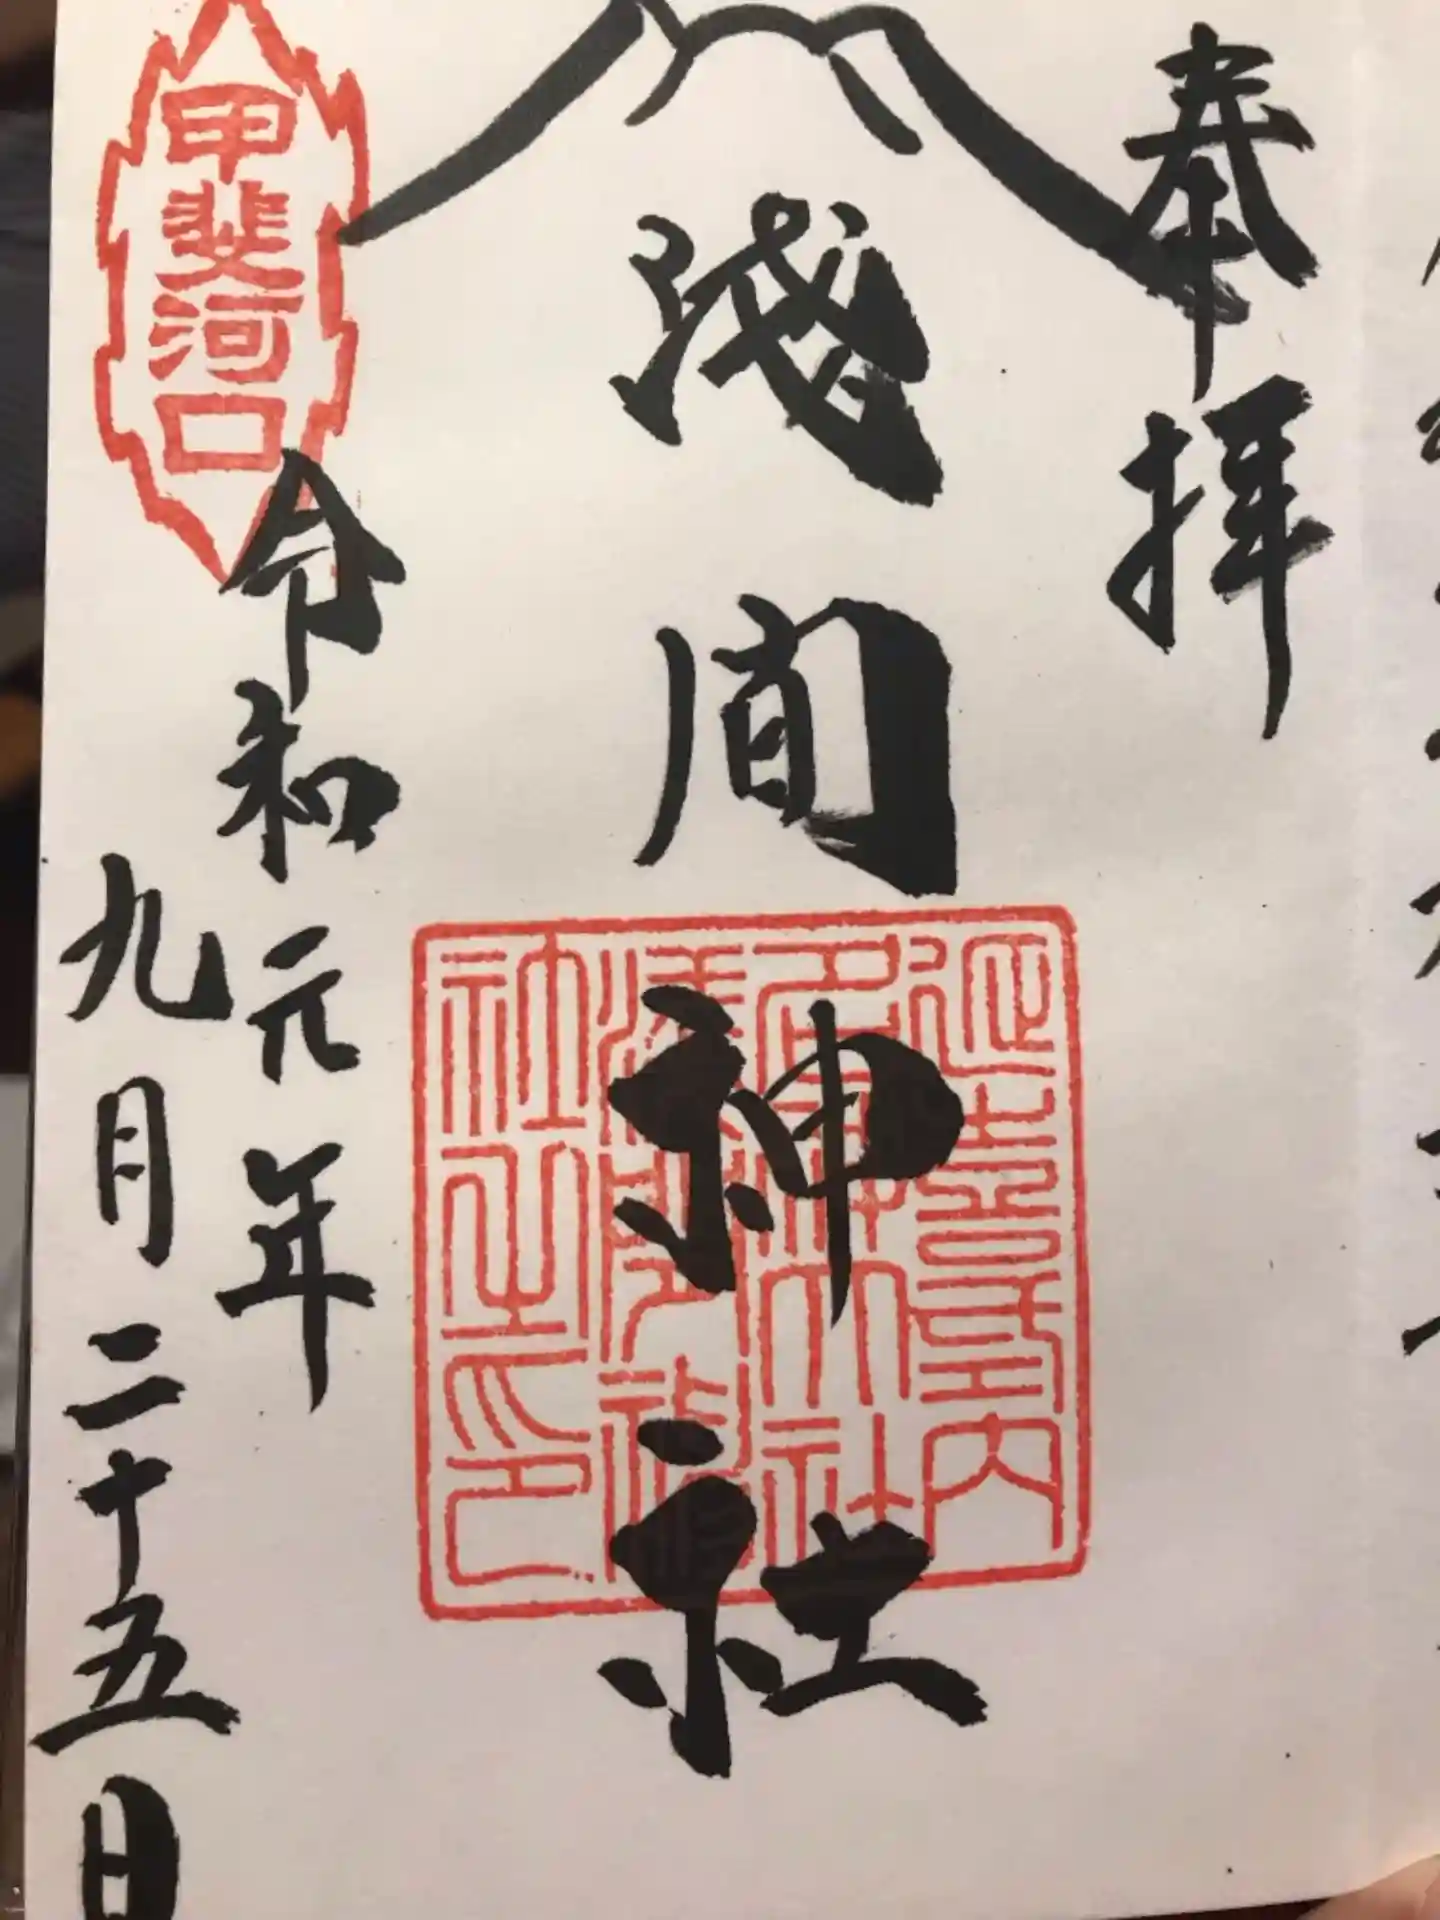 奉拝
浅間神社
令和元年
九月二十五日
甲斐河口